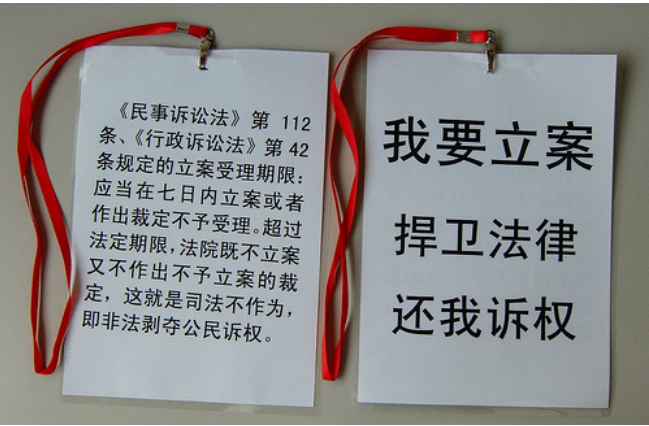 《民事诉讼法》第 112
条、《行政诉讼法》第 42
条规定的立案受理期限：
应当在七日内立案或者
作出裁定不予受理。超过
法定期限，法院既不立案
又不作出不予立案的裁
定，这就是司法不作为，
即非法剥夺公民诉权。
我要立案
捍卫法律
还我诉权